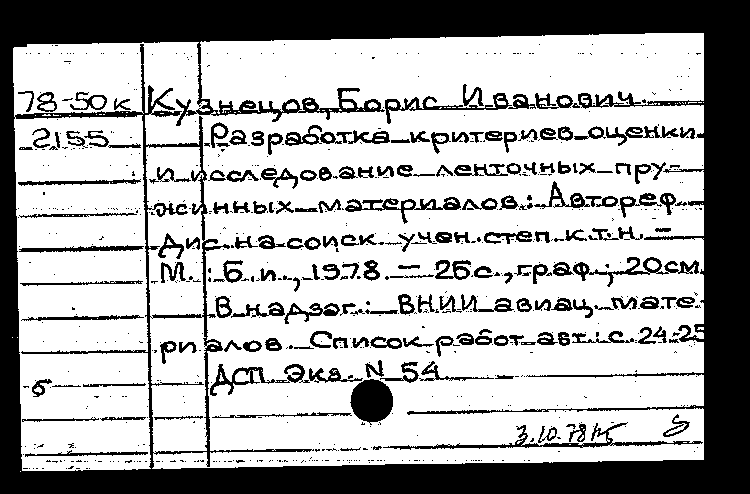 78-50к Кузнецов, Борис Иванович
2155 Разработка критериев оценки
и исследование ленточных пру-
жинных материалов: Автореф.
дис. на соиск. учен. степ. к.т.н. –
М.: Б. и., 1978. – 26 с., граф.; 20 см.
В надзаг.: ВНИИ авиац. мате-
риалов. Список работ авт.: с. 24-25
ДСП Экз. N 54
б
3.10.78